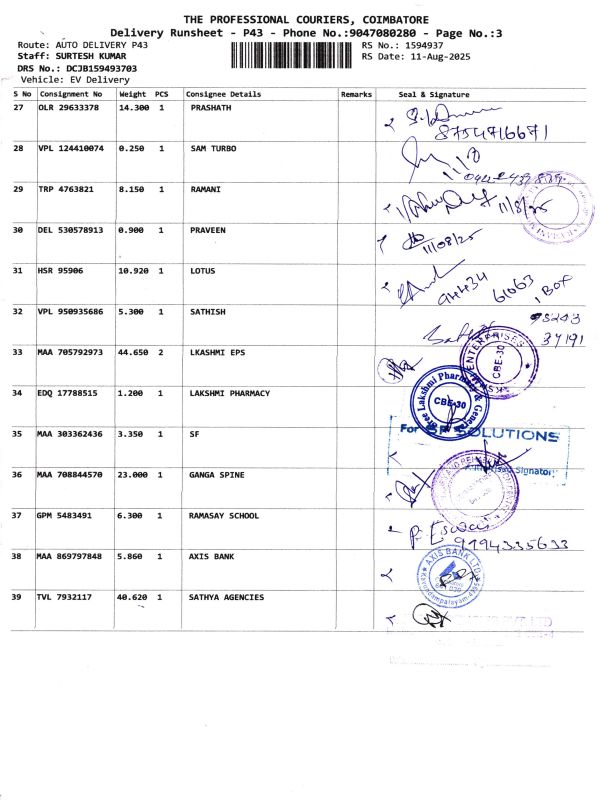 THE PROFESSIONAL COURIERS, COIMBATORE
Delivery Runsheet - P43 - Phone No.:9047080280 - Page No.:3
Route: AUTO DELIVERY P43
Staff: SURTESH KUMAR
DRS No.: DCJB159493703
Vehicle: EV Delivery
RS No.: 1594937
RS Date: 11-Aug-2025
S No Consignment No Weight PCS Consignee Details Remarks Seal & Signature
27 OLR 29633378 14.300 1 PRASHATH
8754716671
28 VPL 124410074 0.250 1 SAM TURBO
29 TRP 4763821 8.150 1 RAMANI 11/8/25
30 DEL 530578913 0.900 1 PRAVEEN 11/08/25
31 HSR 95906 10.920 1 LOTUS 94434 61063
32 VPL 950935686 5.300 1 SATHISH 98243
37191
33 MAA 705792973 44.650 2 LKASHMI EPS ENTERPRISES CBE-30
34 EDQ 17788515 1.200 1 LAKSHMI PHARMACY Sree Lakshmi Pharmacy & General CBE-30
35 MAA 303362436 3.350 1 SF For SF SOLUTIONS
Authorised Signatory
36 MAA 708844570 23.000 1 GANGA SPINE
37 GPM 5483491 6.300 1 RAMASAY SCHOOL
9194335633
38 MAA 869797848 5.860 1 AXIS BANK AXIS BANK LTD
39 TVL 7932117 40.620 1 SATHYA AGENCIES